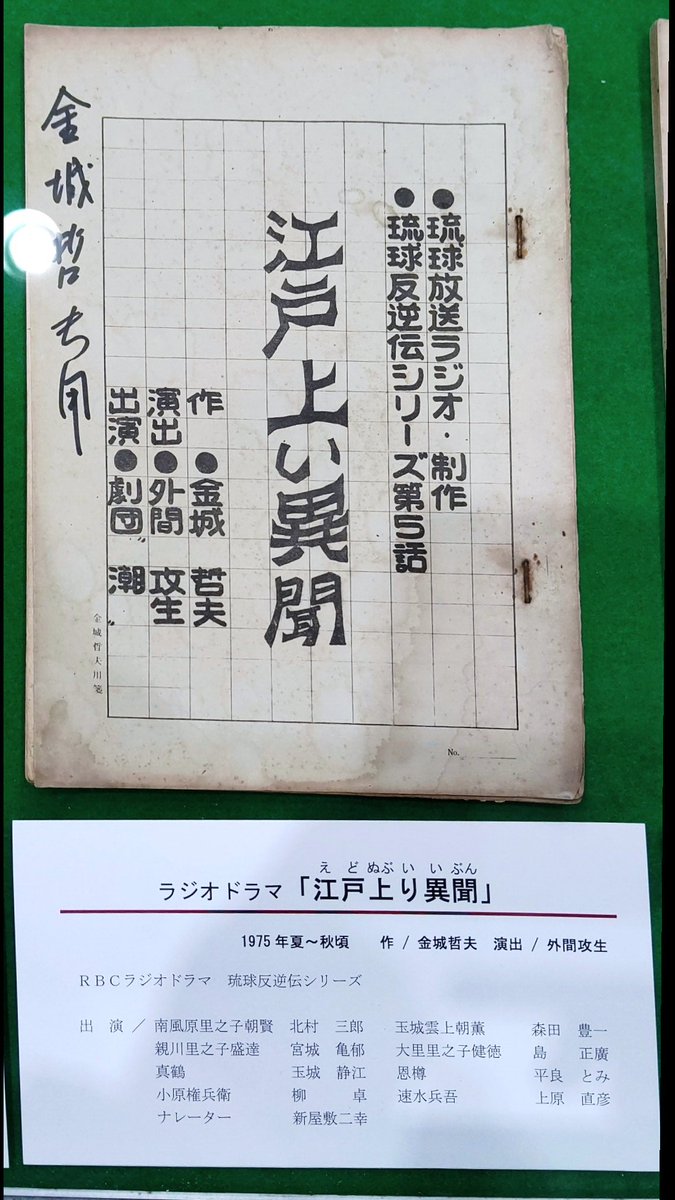 ●琉球放送ラジオ・制作
●琉球反逆伝シリーズ第5話
江戸上い異聞
作●金城 哲夫
演出●外間 攻生
出演●劇団〝潮〟
金城哲夫用
金城哲夫用箋
No.
えどぬぶいいぶん
ラジオドラマ「江戸上り異聞」
1975年夏～秋頃 作 / 金城哲夫 演出 / 外間攻生
ＲＢＣラジオドラマ 琉球反逆伝シリーズ
出 演 ／ 南風原里之子朝賢 北村 三郎 玉城雲上朝薫 森田 豊一
親川里之子盛達 宮城 亀郁 大里里之子健徳 島 正廣
真鶴 玉城 静江 恩樽 平良 とみ
小原権兵衛 柳 卓 速水兵吾 上原 直彦
ナレーター 新屋敷二幸